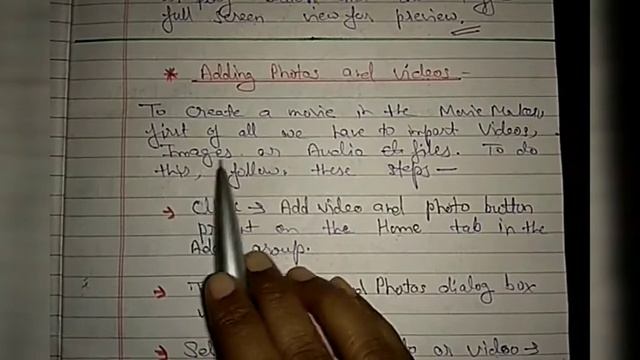 full screen view for preview.
* Adding Photos and Videos -
To create a movie in the Movie Maker,
first of all we have to import Videos,
Images or Audio files. To do
this, follow these steps -
→ Add video and photo button
on the Home tab in the
group.
Photos dialog box
or video →